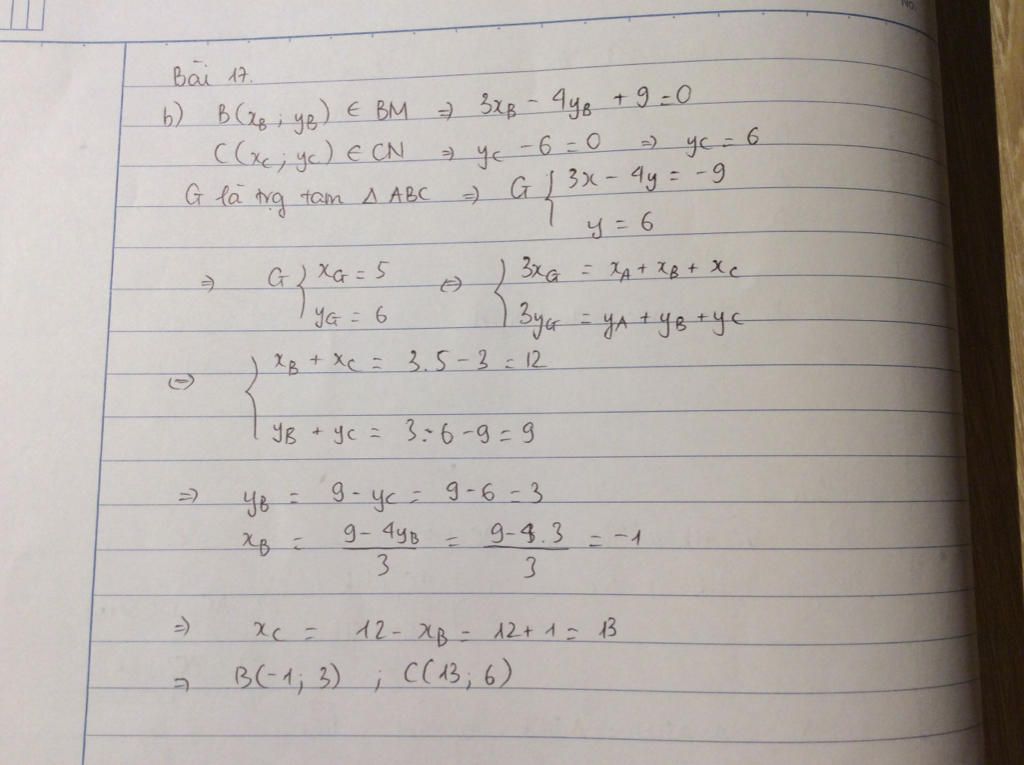 No.
Bài 17.
b) B(x_B ; y_B) ∈ BM ⇒ 3x_B - 4y_B + 9 = 0
C(x_C ; y_C) ∈ CN ⇒ y_C - 6 = 0 ⇒ y_C = 6
G là trg tam Δ ABC ⇒ G { 3x - 4y = -9
y = 6
⇒ G { x_G = 5 ⇔ { 3x_G = x_A + x_B + x_C
y_G = 6 3y_G = y_A + y_B + y_C
⇔ { x_B + x_C = 3.5 - 3 = 12
y_B + y_C = 3.6 - 9 = 9
⇒ y_B = 9 - y_C = 9 - 6 = 3
x_B = (9 - 4y_B)/3 = (9 - 4.3)/3 = -1
⇒ x_C = 12 - x_B = 12 + 1 = 13
⇒ B(-1; 3) ; C(13; 6)